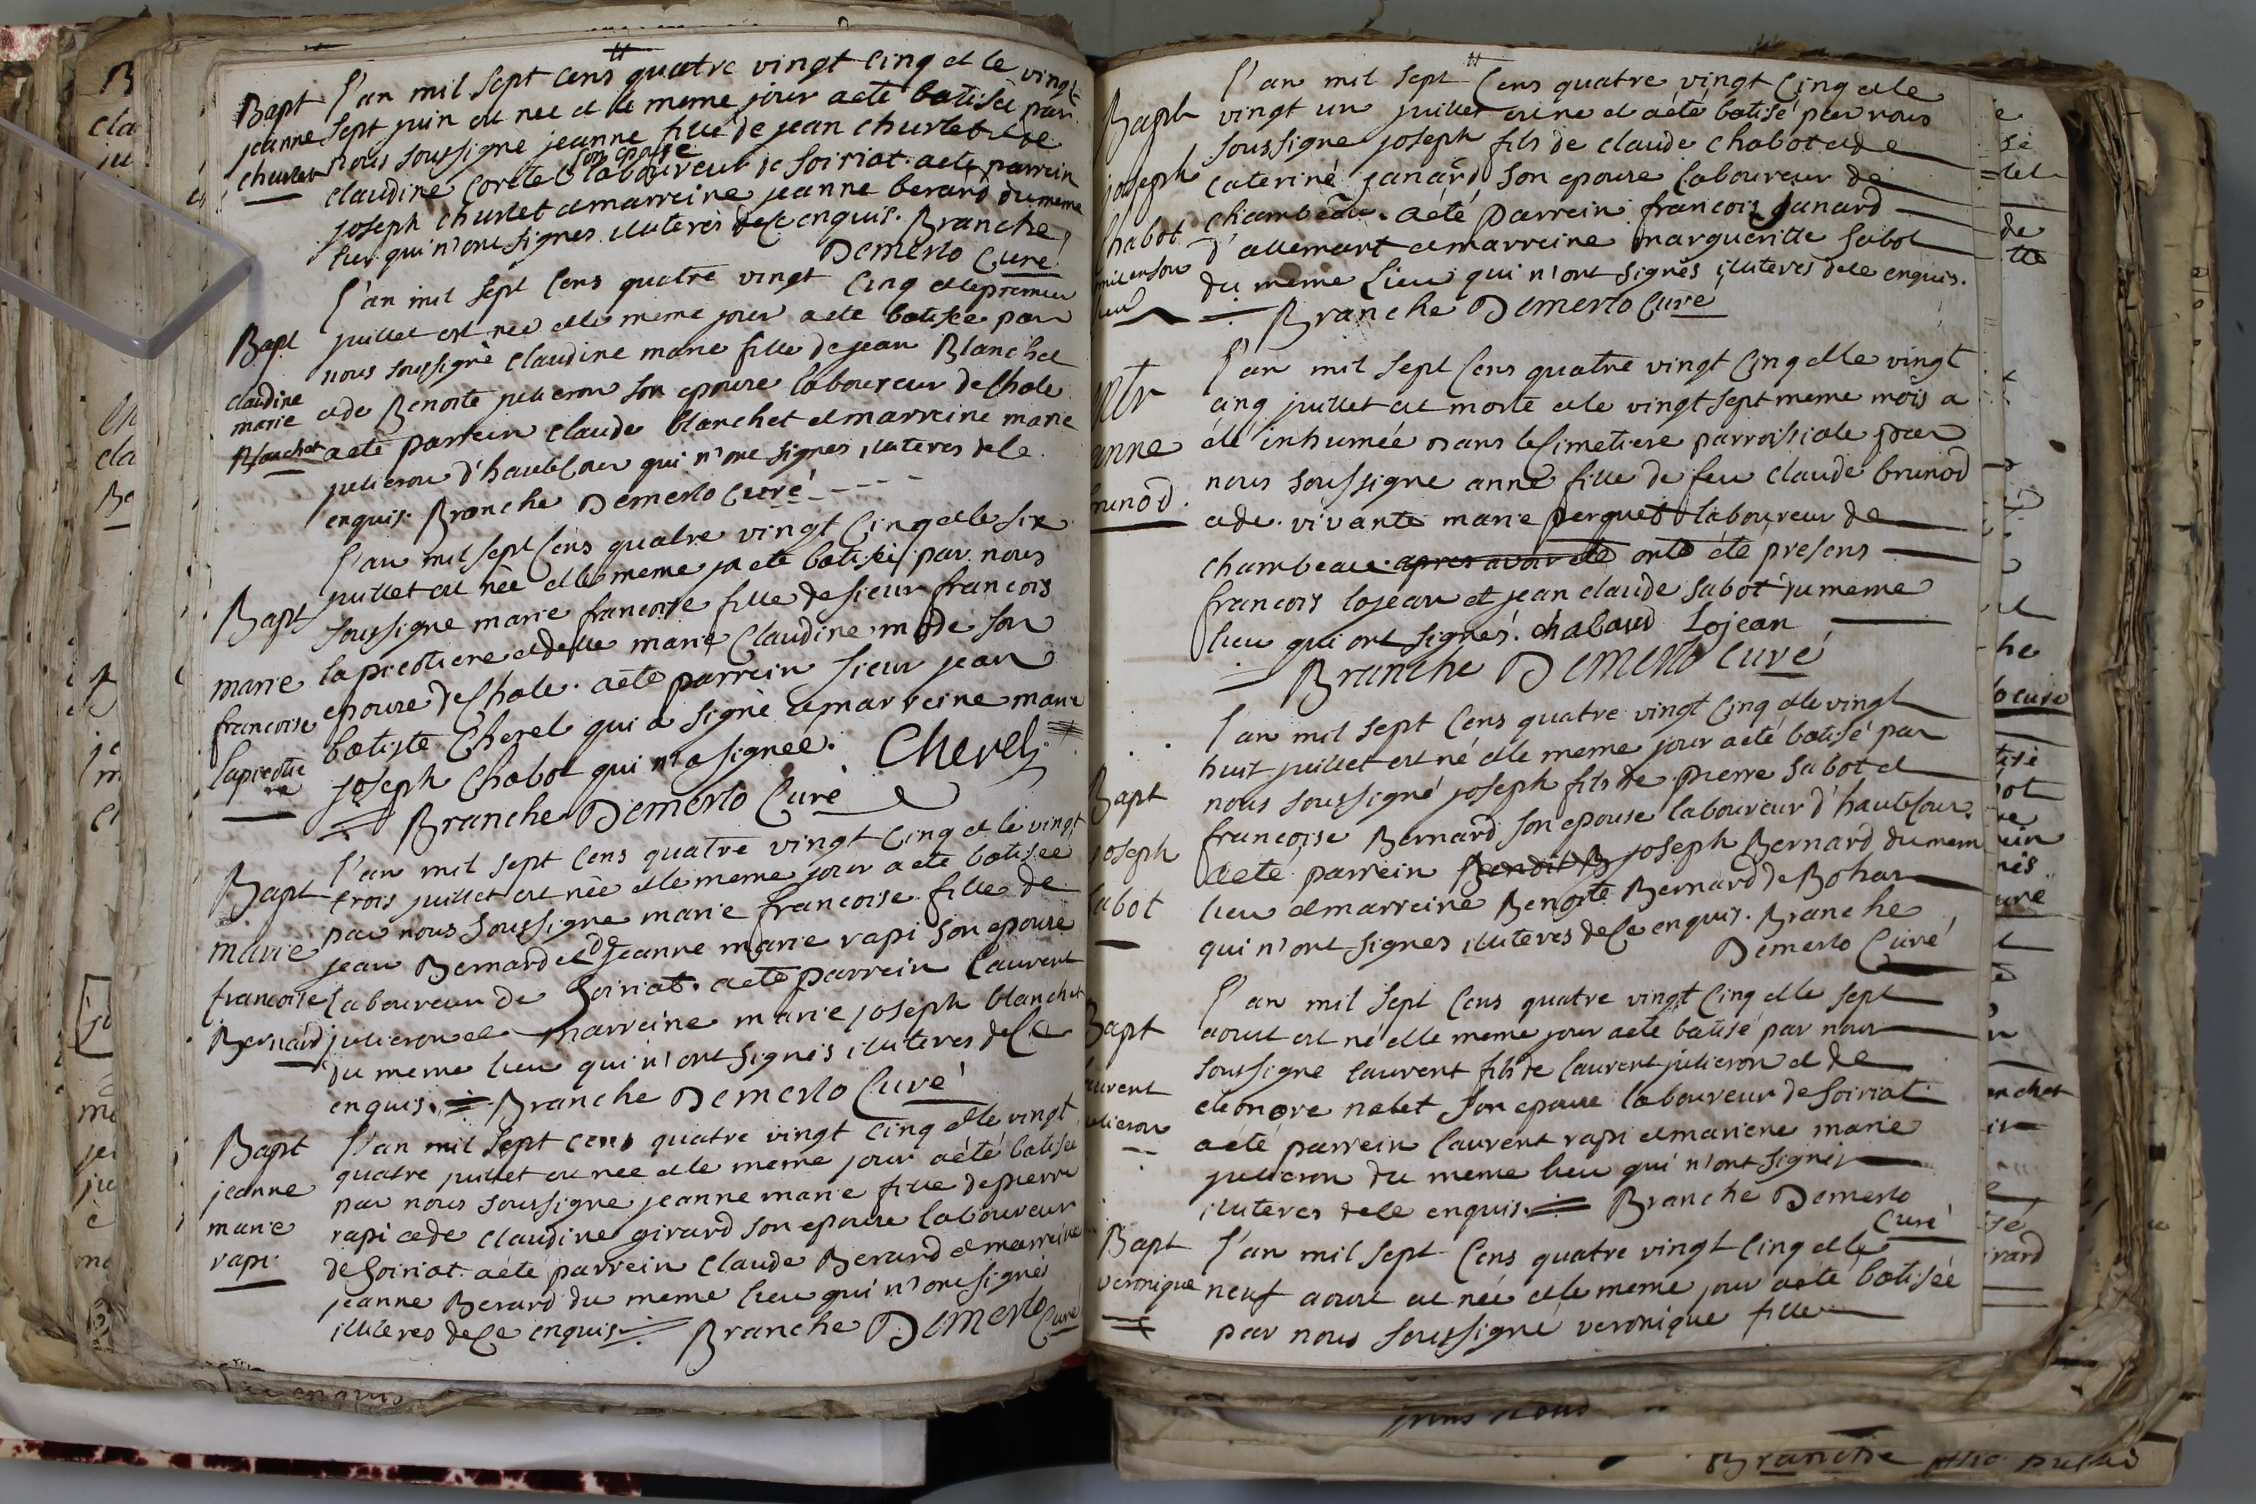 Bapt
jeanne
churlet
l'an mil sept cens quatre vingt cinq et le vingt
sept juin est nee et le meme jour a eté batiseé par
nous soussigné jeanne fille de jean churlet et de
son epouse
claudine laboureur de soiriat. a eté parrein
joseph churlet et marreine jeanne berard du meme
lieu qui n'ont signes illiterès de ce enquis. Branche
Demerlo Curé
l'an mil sept cens quatre vingt cinq et le premier
Bapt
claudine
marie
Blanchet
juillet est neé et le meme jour a eté batiseé par
nous soussigné claudine marie fille de jean Blanchet
et de Benoite julieron son epouse laboureur de Chale
a eté parrein claude blanchet et marreine marie
julieron d'hautecour qui n'ont signes illiteres de ce
enquis. Branche Demerlo Curé
l'an mil sept cens quatre vingt cinq et le six
Bapt
marie
francoise
lapreotie
re
juillet est neé et le meme jr a eté batisée par nous
soussigné marie francoise fille de sieur francois
lapreotiere et de marie claudine mode son
epouse de Chale. a eté parrein sieur jean
batiste Cherel qui a signé et marreine marie
joseph Chabot qui n'a signeé. Cherel
Branche Demerlo Curé
l'an mil sept cens quatre vingt cinq et le vingt
Bapt
marie
francoise
Bernard
trois juillet est neé et le meme jour a eté batisee
par nous soussigné marie francoise fille de
jean Bernard et de jeanne marie rapi son epouse
laboureur de Soiriat. a eté parrein laurent
julieron et marreine marie joseph blanchet
du meme lieu qui n'ont signés illiteres de ce
enquis. Branche Demerlo Curé
Bapt
jeanne
marie
rapi
l'an mil sept cens quatre vingt cinq et le vingt
quatre juillet est neé et le meme jour a été batisee
par nous soussigné jeanne marie fille de pierre
rapi et de claudine girard son epouse laboureur
de Soiriat. a eté parrein claude Berard et marreine
jeanne Berard du meme lieu qui n'ont signés
illiteres de ce enquis. Branche Demerlo
Curé
Bapt
joseph
habot
l'an mil sept cens quatre vingt cinq et le
vingt un juillet est né et a eté batisé par nous
soussigné joseph fils de claude chabot et de
caterine janard son epouse laboureur de
chambeau. a eté parrein francois janard
d'allemart et marreine margueritte sabot
du meme lieu qui n'ont signés illiteres de ce enquis.
Branche Demerlo Curé
anne
runod
l'an mil sept cens quatre vingt cinq et le vingt
cinq juillet est morte et le vingt sept meme mois a
été inhumée dans le cimetiere parroissiale par
nous soussigné anne fille de feu claude brunod
et de vivante marie perquet laboureur de
chambeau apres avoir eté ont été presens
francois lojean et jean claude sabot du meme
lieu qui ont signés. chabaud Lojean
Branche Demerlo Curé
l'an mil sept cens quatre vingt cinq et le vingt
Bapt
joseph
sabot
huit juillet est né et le meme jour a eté batisé par
nous soussigné joseph fils de pierre sabot et
francoise Bernard son epouse laboureur d'hautecour.
a eté parrein Benoit B joseph Bernard du mem
lieu et marreine Benoite Bernard de Bohas
qui n'ont signes illiteres de ce enquis. Branche
Demerlo Curé
l'an mil sept cens quatre vingt cinq et le sept
Bapt
aurent
ulieron
aoust est né et le meme jour a eté batisé par nous
soussigné laurent fils de laurent julieron et de
eleonore nalet son epouse laboureur de soiriat
a eté parrein laurent rapi et mariene marie
julieron du meme lieu qui n'ont signés
illiteres de ce enquis. Branche Demerlo
Curé
Bapt
veronique
l'an mil sept cens quatre vingt cinq et le
neuf aoust est neé et le meme jour a eté batiseé
par nous soussigné veronique fille
Branche